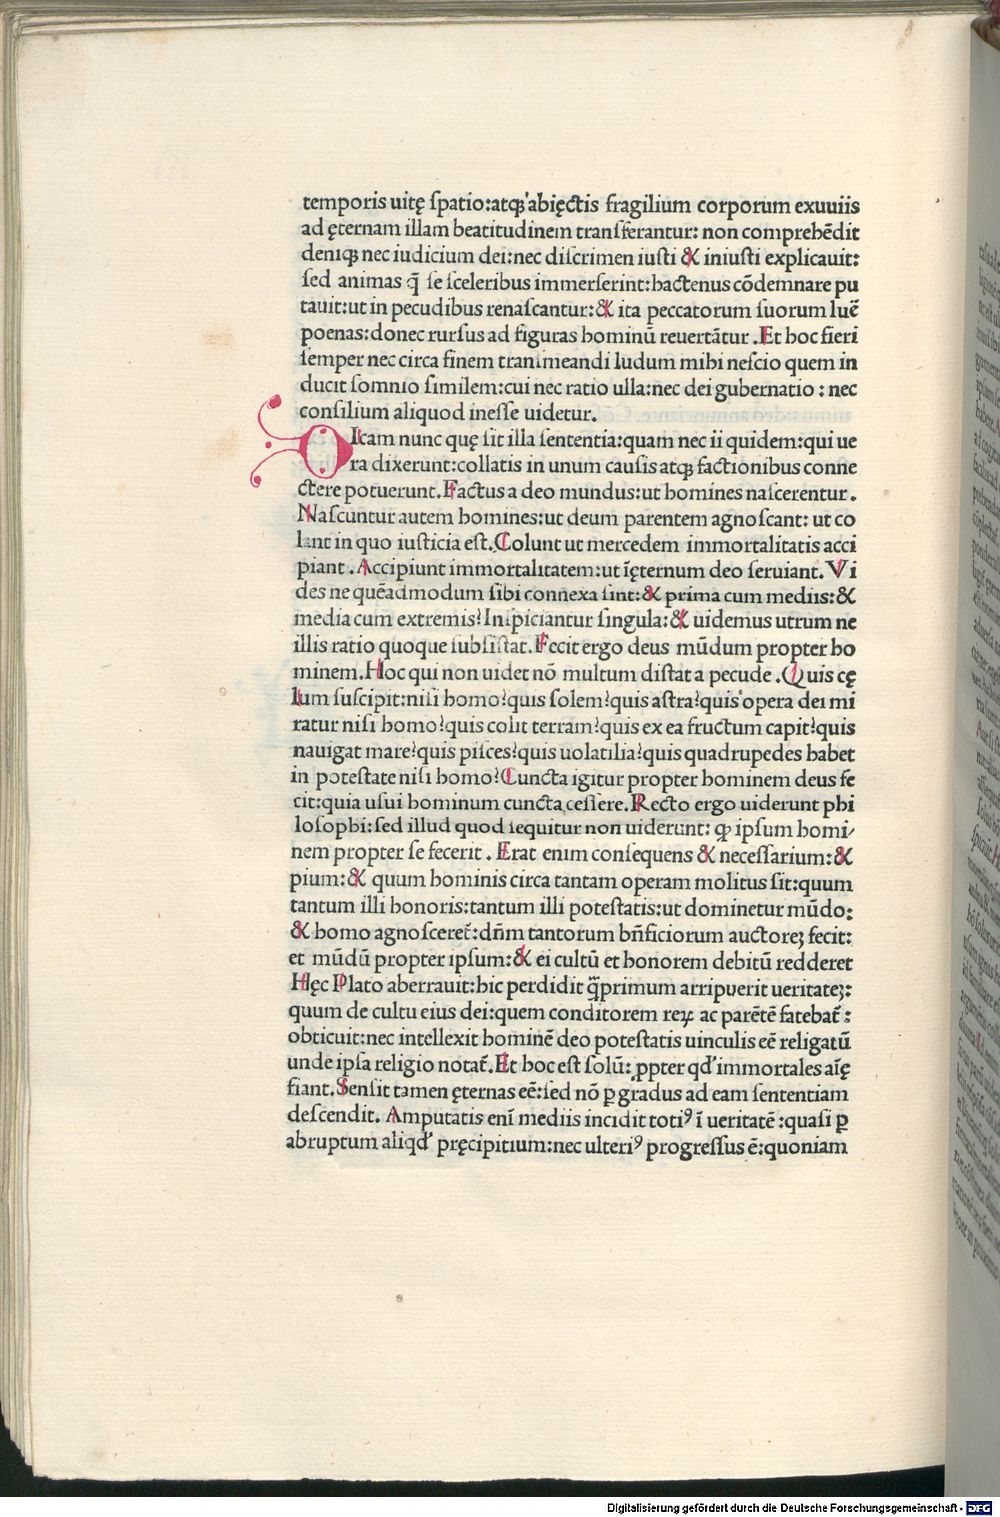 temporis uitę spatio:atqꝫ abięctis fragilium corporum exuuiis
ad ęternam illam beatitudinem transferantur: non comprehēdit
deniqꝫ nec iudicium dei:nec discrimen iusti & iniusti explicauit:
sed animas q̄ se sceleribus immerserint:hactenus cōdemnare pu
tauit:ut in pecudibus renascantur:& ita peccatorum suorum luē
poenas:donec rursus ad figuras hominū reuertātur .Et hoc fieri
semper nec circa finem transmeandi ludum mihi nescio quem in
ducit somnio similem:cui nec ratio ulla:nec dei gubernatio : nec
consilium aliquod inesse uidetur.
DIcam nunc quę sit illa sententia:quam nec ii quidem:qui ue
ra dixerunt:collatis in unum causis atqꝫ factionibus conne
ctere potuerunt.Factus a deo mundus:ut homines nascerentur.
Nascuntur autem homines:ut deum parentem agnoscant: ut co
lant in quo iusticia est.Colunt ut mercedem immortalitatis acci
piant .Accipiunt immortalitatem:ut īęternum deo seruiant. Vi
des ne quēadmodum sibi connexa sint:& prima cum mediis:&
media cum extremis?Inspiciantur singula:& uidemus utrum ne
illis ratio quoque subsistat.Fecit ergo deus mūdum propter ho
minem.Hoc qui non uidet nō multum distat a pecude .Quis cę
lum suscipit:nisi homo?quis solem?quis astra?quis opera dei mi
ratur nisi homo?quis colit terram?quis ex ea fructum capit?quis
nauigat mare?quis pisces?quis uolatilia?quis quadrupedes habet
in potestate nisi homo?Cuncta igitur propter hominem deus fe
cit:quia usui hominum cuncta cessere.Recto ergo uiderunt phi
losophi:sed illud quod sequitur non uiderunt: ꝙ ipsum homi/
nem propter se fecerit . Erat enim consequens & necessarium:&
pium:& quum hominis circa tantam operam molitus sit:quum
tantum illi honoris:tantum illi potestatis:ut dominetur mūdo:
& homo agnosceret̄:dn̄m tantorum bn̄ficiorum auctoreꝫ fecit:
et mūdū propter ipsum:& ei cultū et honorem debitū redderet
Hęc Plato aberrauit:hic perdidit q̄primum arripuerit ueritateꝫ:
quum de cultu eius dei:quem conditorem reꝝ ac parētē fatebat̄:
obticuit:nec intellexit hominē deo potestatis uinculis eē religatū
unde ipsa religio notat̄.Et hoc est solū: ꝓpter qd' immortales aīę
fiant.Sensit tamen ęternas eē:sed nō ꝑ gradus ad eam sententiam
descendit. Amputatis enī mediis incidit totiꝰ ī ueritatē :quasi ꝑ
abruptum aliqd' pręcipitium:nec ulteriꝰ progressus ē:quoniam
Digitalisierung gefördert durch die Deutsche Forschungsgemeinschaft - DFG